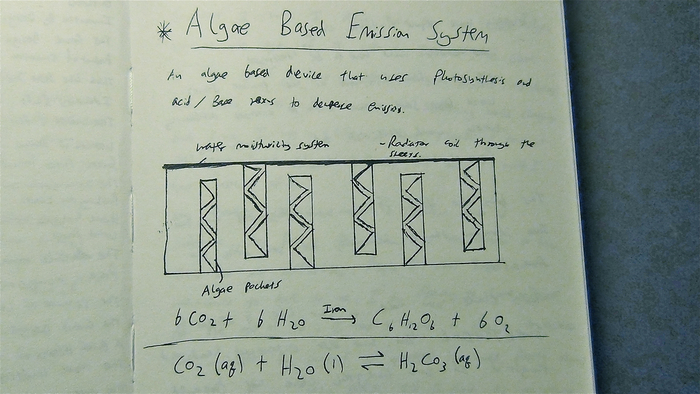 * Algae Based Emission System
An algae based device that uses Photosynthesis and
acid / Base rexns to decrease emissions.
water moisturizing system
- Radiator coil through the
sheets.
Algae pockets
6 CO2 + 6 H2O Iron → C6H12O6 + 6 O2
CO2 (aq) + H2O (l) ⇌ H2CO3 (aq)